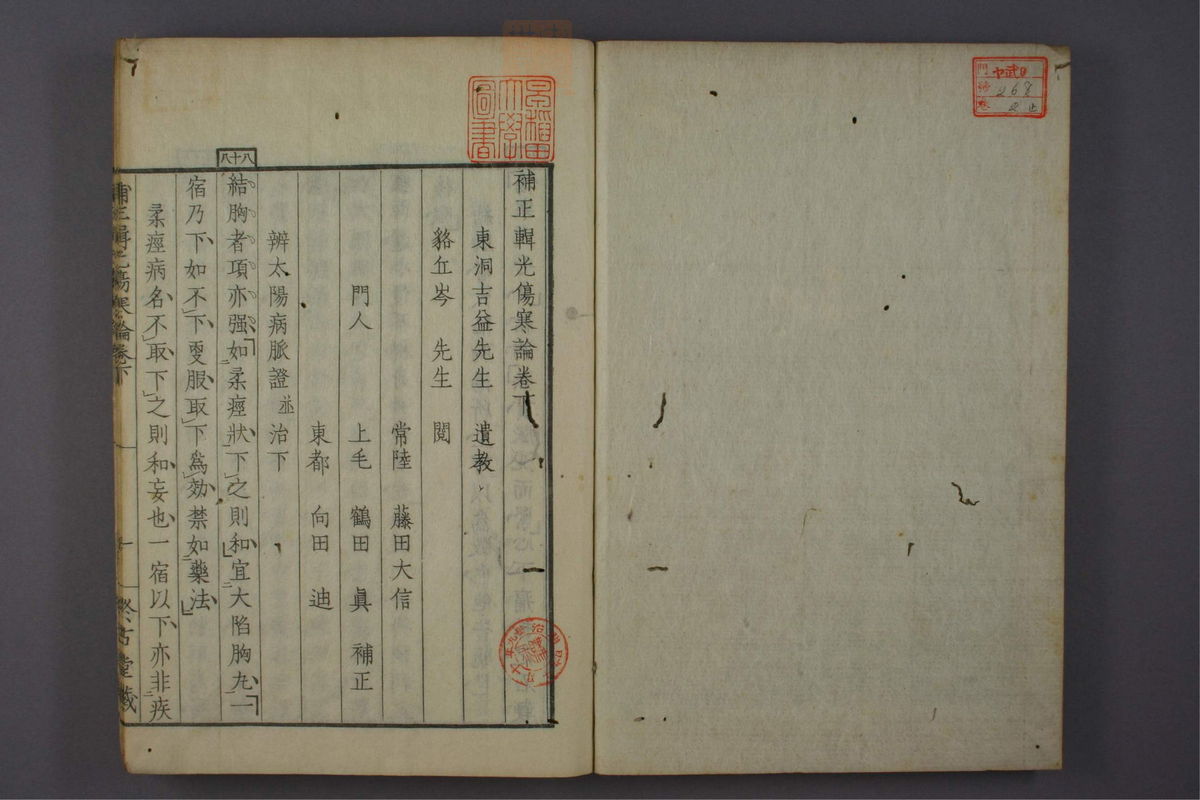 補正輯光傷寒論卷下
東洞吉益先生遺教
貉丘岑　先生　閲
常陸　藤田大信
門人　上毛　鶴田　眞　補正
東都　向田　迪
辨太陽病脈證並治下
八十八
結胸者項亦强如柔痙狀下之則和宜大陷胸丸一
宿乃下如不下更服取下爲効禁如藥法
柔痙病名不取下之則和妄也一宿以下亦非疾